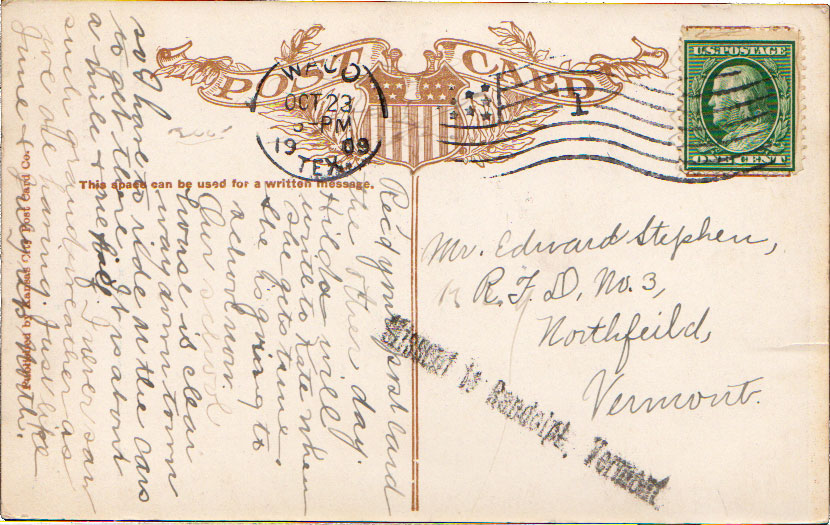 POST CARD
WACO
OCT 23
PM
19 09
TEX.
1
U.S. POSTAGE
ONE CENT
This space can be used for a written message.
Published by Kansas City Post Card Co.
Rec'd your postal card
the other day.
Hilda will
write to Kate when
she gets time.
She is going to
school now.
Our school
house is clear
way down town
so I have to ride on the cars
to get there. It is about
a mile & one half.
I never saw
such grand weather as
we are having. Just like
June & July up north.
Mr. Edward Stephen,
R.F.D. No. 3,
Northfeild,
Vermont.
Missent to Randolph, Vermont